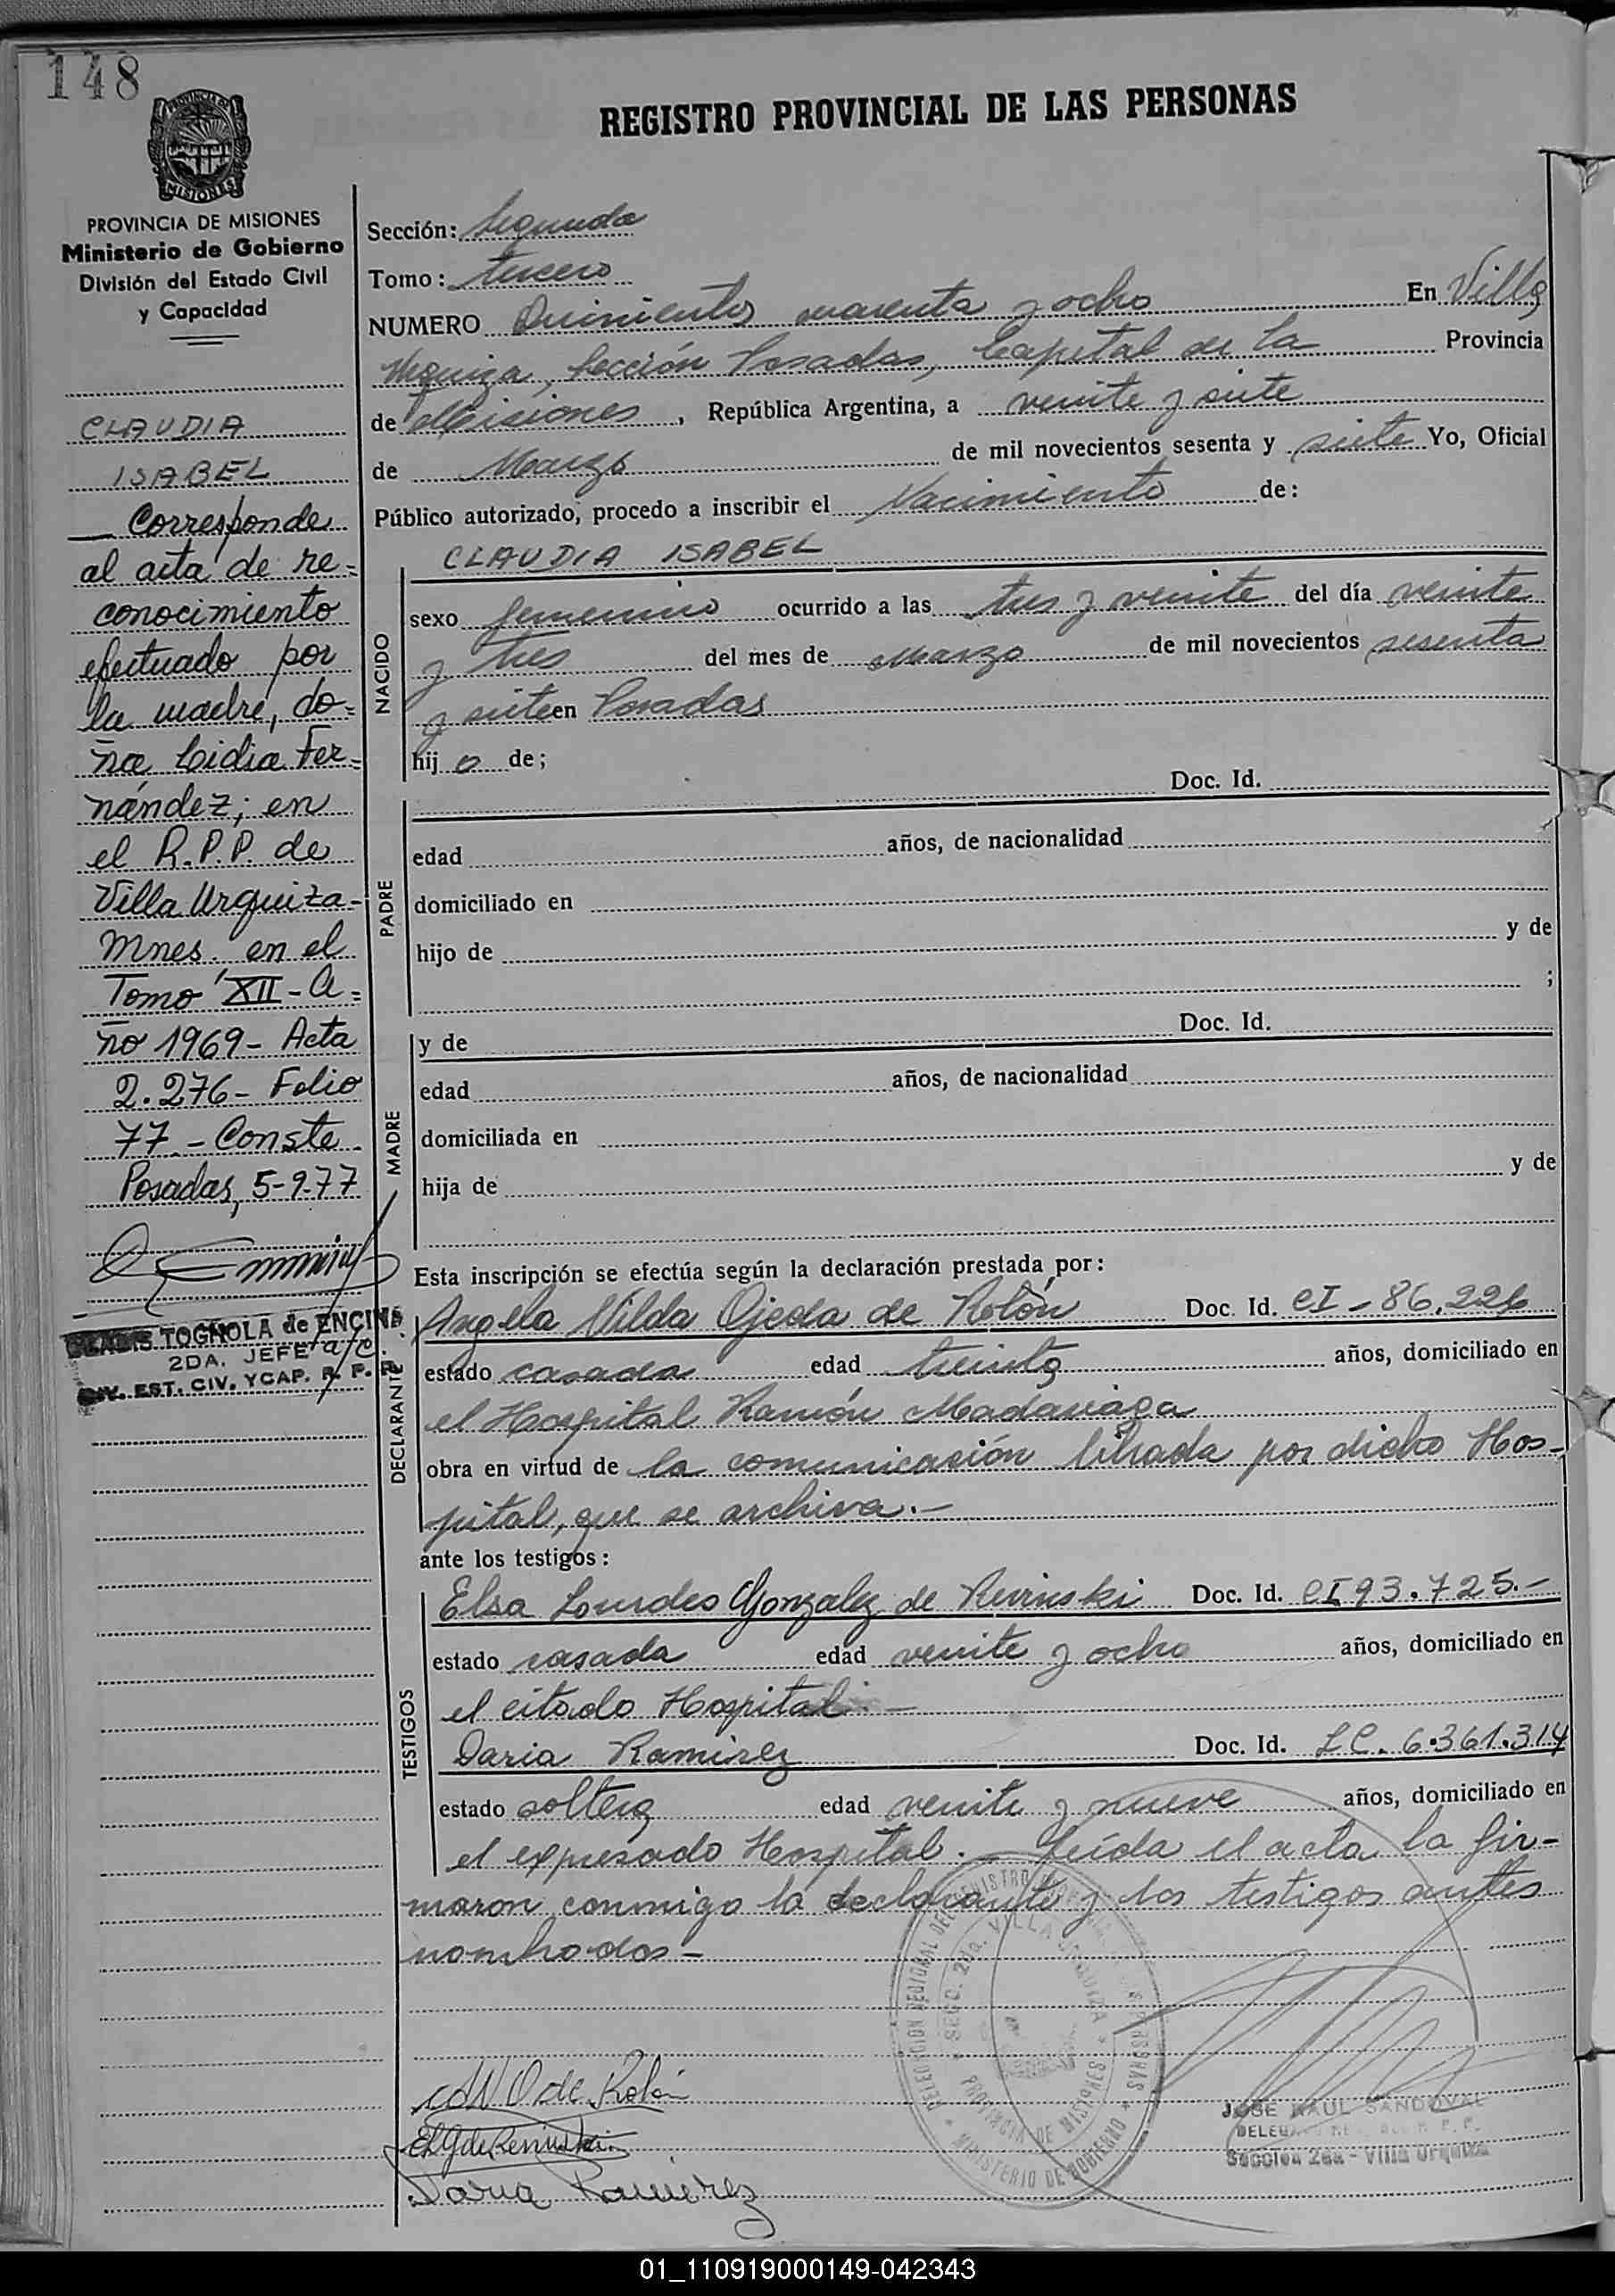 148
REGISTRO PROVINCIAL DE LAS PERSONAS
PROVINCIA DE MISIONES
Ministerio de Gobierno
División del Estado Civil
y Capacidad
CLAUDIA
ISABEL
Corresponde
al acta de re=
conocimiento
efectuado por
la madre, do=
ña Lidia Fer=
nández; en
el R.P.P. de
Villa Urquiza-
Mnes. en el
Tomo XII - A=
ño 1969 - Acta
2.276 - Folio
77 - Conste
Posadas, 5-9-77
GLADIS TOGNOLA de ENCINA
2DA. JEFE a/c.
DIV. EST. CIV. YCAP. R. P. P.
Sección: Segunda
Tomo: tercero
NUMERO Quinientos cuarenta y ocho En Villa
Urquiza, Sección Posadas, Capital de la Provincia
de Misiones, República Argentina, a veinte y siete
de Marzo de mil novecientos sesenta y siete Yo, Oficial
Público autorizado, procedo a inscribir el Nacimiento de:
NACIDO
CLAUDIA ISABEL
sexo femenino ocurrido a las tres y veinte del día veinte
y tres del mes de Marzo de mil novecientos sesenta
y siete en Posadas
hij a de;
PADRE
Doc. Id.
edad años, de nacionalidad
domiciliado en
hijo de y de
;
MADRE
y de Doc. Id.
edad años, de nacionalidad
domiciliada en
hija de y de
Esta inscripción se efectúa según la declaración prestada por:
DECLARANTE
Angela Nilda Ojeda de Rolón Doc. Id. CI - 86.226
estado casada edad treinta años, domiciliado en
el Hospital Ramón Madariaga
obra en virtud de la comunicación librada por dicho Hos-
pital, que se archiva.-
ante los testigos:
TESTIGOS
Elsa Lourdes Gonzalez de Revinski Doc. Id. CI 93.725.-
estado casada edad veinte y ocho años, domiciliado en
el citado Hospital.-
Daria Ramirez Doc. Id. LC. 6.361.314
estado soltera edad veinte y nueve años, domiciliado en
el expresado Hospital.- Leída el acta la fir-
maron conmigo la declarante y los testigos antes
nombrados.-
A N O de Rolón
E L G de Revinski
Daria Ramirez
SECC. 2da. VILLA URQUIZA
PROVINCIA DE MISIONES
MINISTERIO DE GOBIERNO
JOSE RAUL SANDOVAL
Sección 2da - Villa Urquiza
01_110919000149-042343